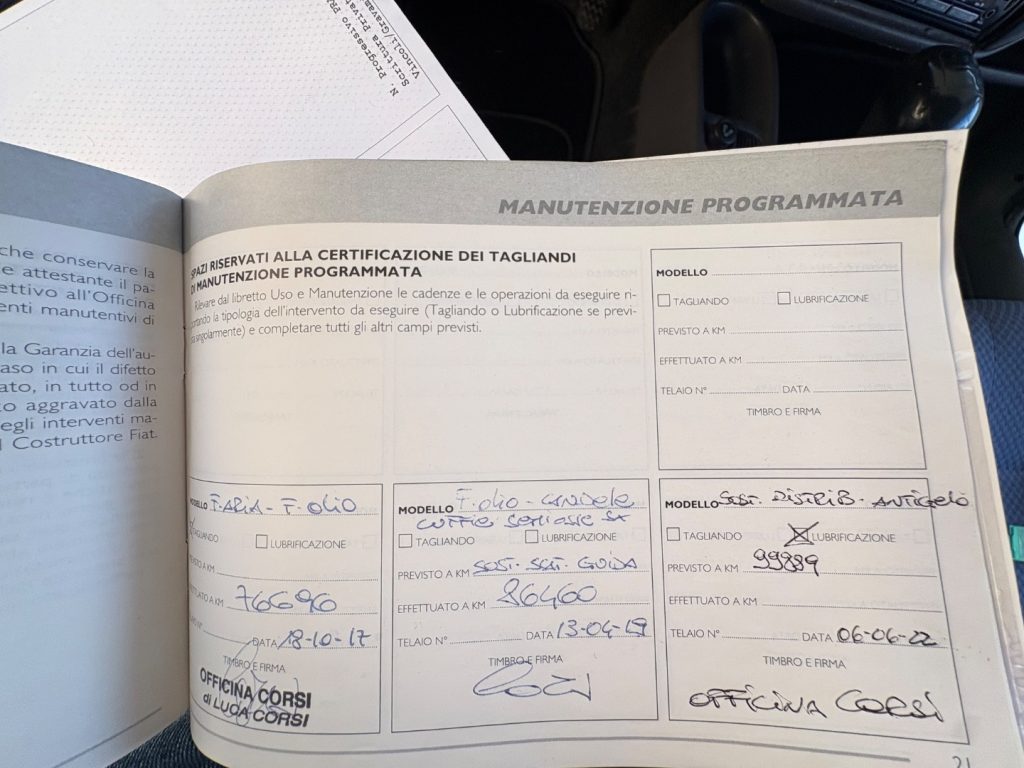 N. Progressivo PR
Scrittura Privat
Vincoli/Gravam
che conservare la
e attestante il pa-
ettivo all'Officina
enti manutentivi di
la Garanzia dell'au-
aso in cui il difetto
ato, in tutto od in
o aggravato dalla
egli interventi ma-
l Costruttore Fiat.
MANUTENZIONE PROGRAMMATA
SPAZI RISERVATI ALLA CERTIFICAZIONE DEI TAGLIANDI
DI MANUTENZIONE PROGRAMMATA
Rilevare dal libretto Uso e Manutenzione le cadenze e le operazioni da eseguire ri-
portando la tipologia dell'intervento da eseguire (Tagliando o Lubrificazione se previ-
sta singolarmente) e completare tutti gli altri campi previsti.
MODELLO
TAGLIANDO LUBRIFICAZIONE
PREVISTO A KM
EFFETTUATO A KM
TELAIO N° DATA
TIMBRO E FIRMA
MODELLO F. ARIA - F. OLIO
TAGLIANDO LUBRIFICAZIONE
PREVISTO A KM
EFFETTUATO A KM 76696
TELAIO N° DATA 18-10-17
TIMBRO E FIRMA
OFFICINA CORSI
di LUCA CORSI
MODELLO F. OLIO - CANDELE
CUFFIE SEMIASSE SX
TAGLIANDO LUBRIFICAZIONE
PREVISTO A KM SOST. SCAT. GUIDA
EFFETTUATO A KM 86460
TELAIO N° DATA 13-04-19
TIMBRO E FIRMA
MODELLO SOST. DISTRIB - ANTIGELO
TAGLIANDO LUBRIFICAZIONE
PREVISTO A KM 99889
EFFETTUATO A KM
TELAIO N° DATA 06-06-22
TIMBRO E FIRMA
OFFICINA CORSI
21